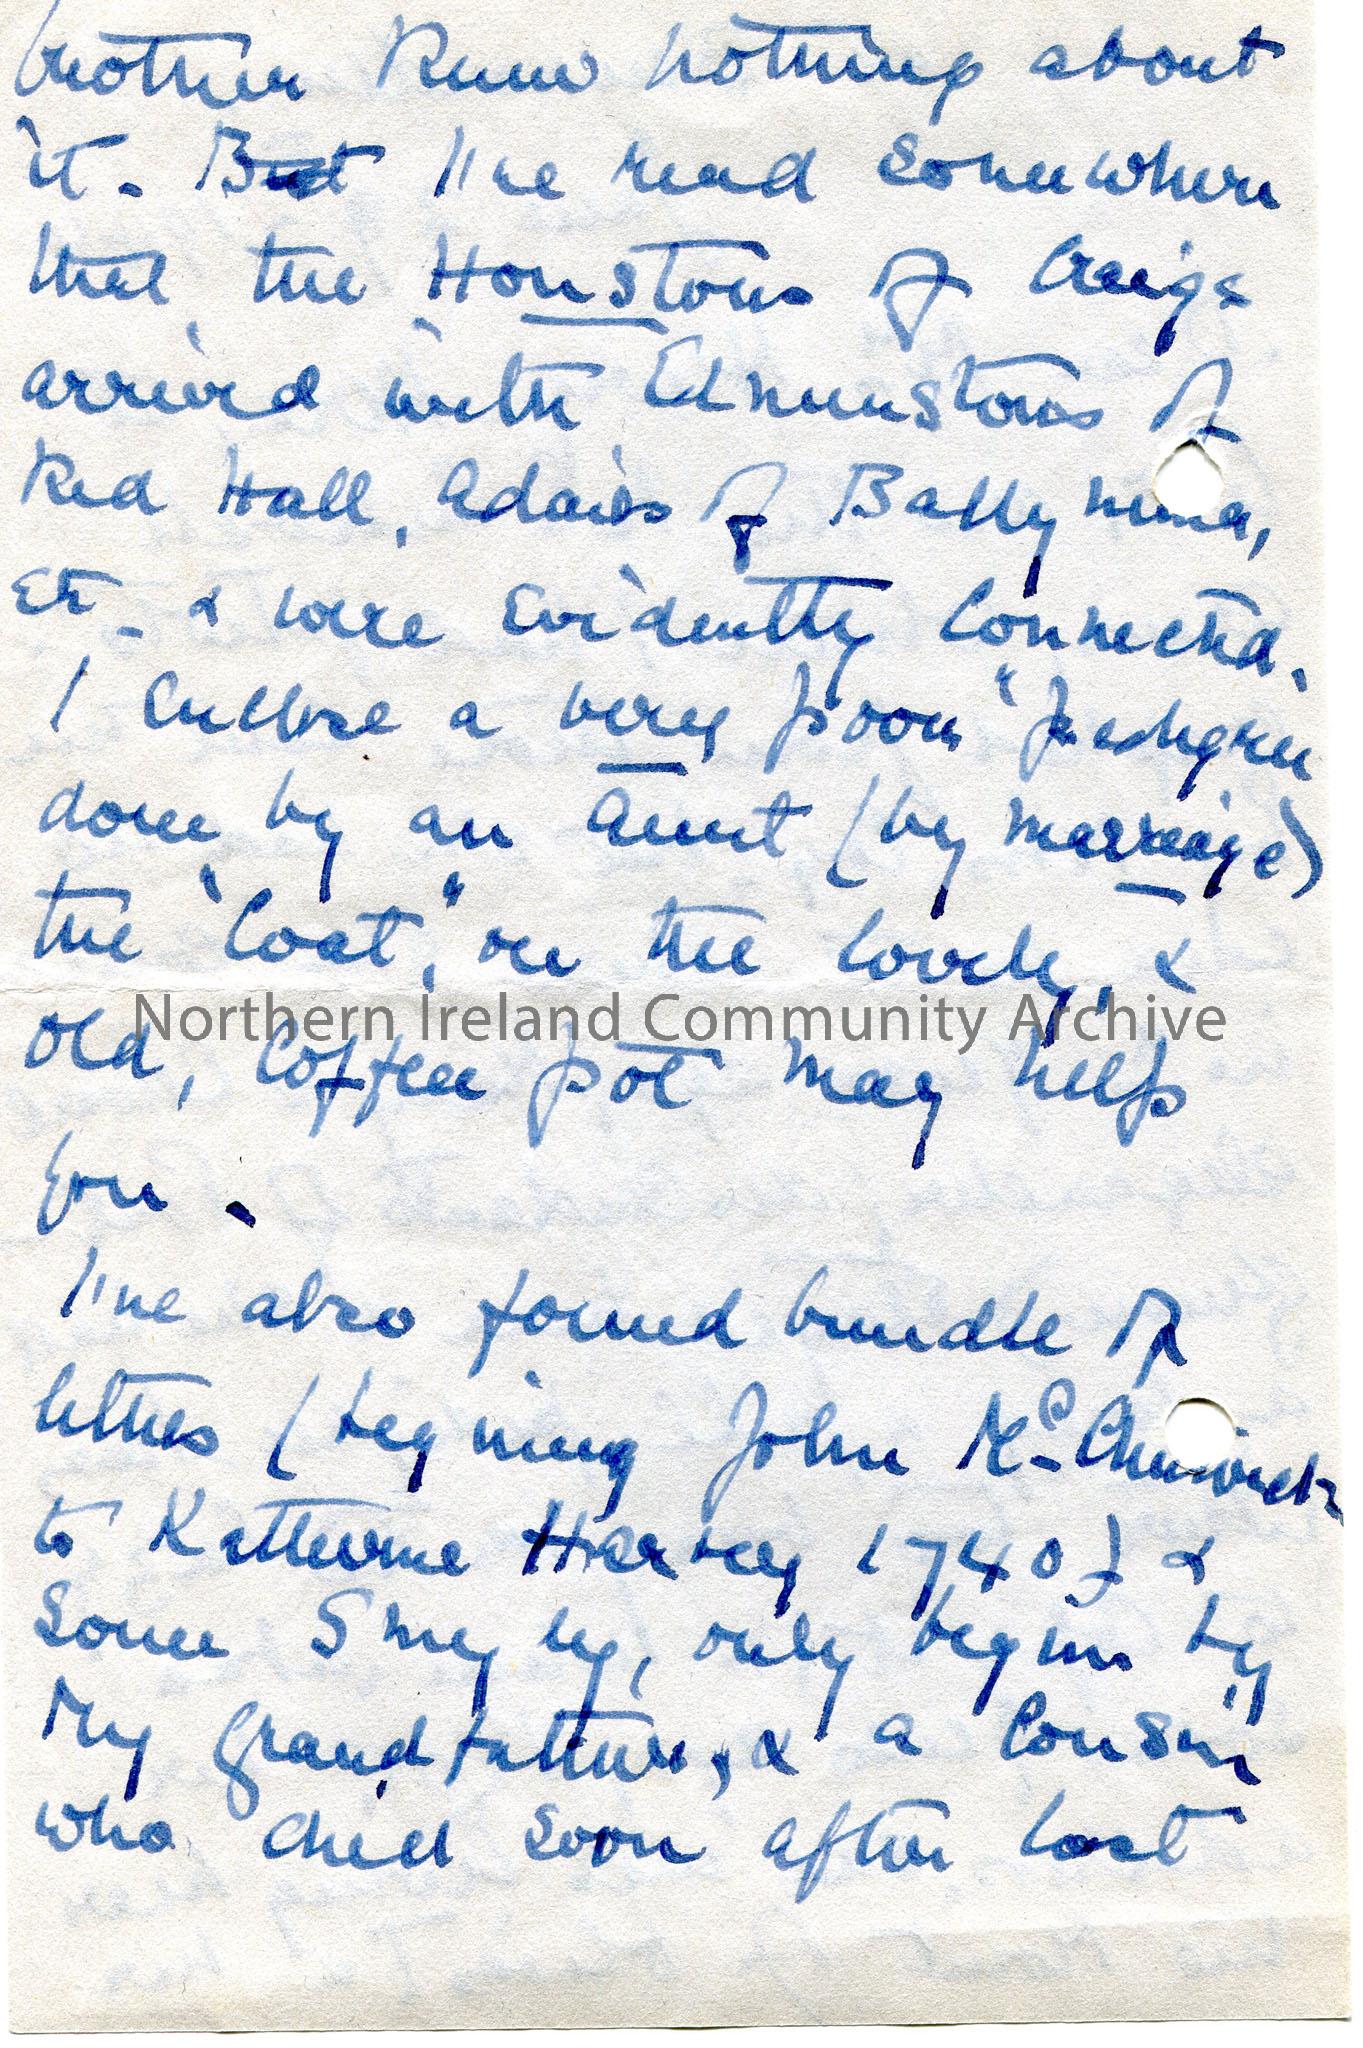 brother knew nothing about
it. But I've read somewhere
that the Houstons of Craigs
arrived with Edmunstons of
Red Hall, Adairs of Ballymena,
Etc. & were evidently connected.
I enclose a very poor "pedigree
done by an Aunt (by marriage)
the "Coat", on the lovely, &
old, Coffee pot may help
you.
I've also found bundle of
letters (begining John
to Katherine Harvey 1740) &
some Smyly, only begins by
My grandfather, & a Cousin
who died soon after last
Northern Ireland Community Archive